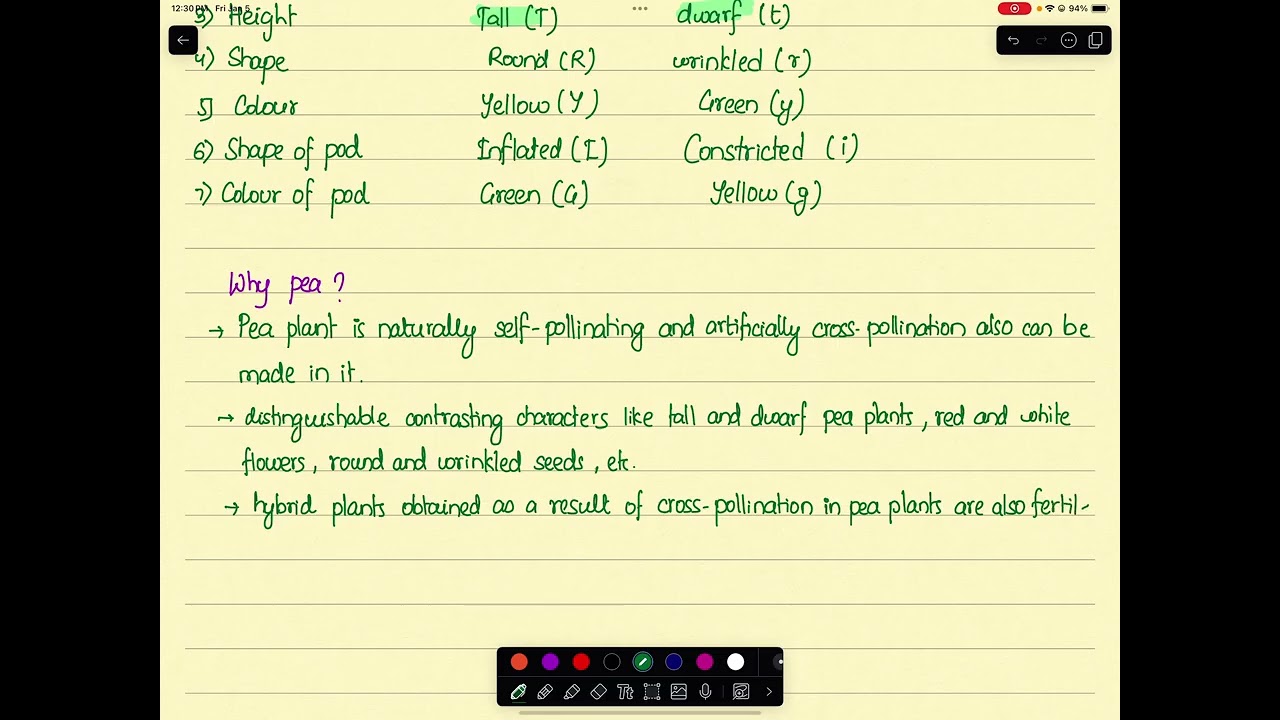 12:30 PM Fri Jan 5
94%
3) Height Tall (T) dwarf (t)
4) Shape Round (R) wrinkled (r)
5) Colour Yellow (Y) Green (y)
6) Shape of pod Inflated (I) Constricted (i)
7) Colour of pod Green (G) Yellow (g)
Why pea?
→ Pea plant is naturally self-pollinating and artificially cross-pollination also can be
made in it.
→ distinguishable contrasting characters like tall and dwarf pea plants, red and white
flowers, round and wrinkled seeds, etc.
→ hybrid plants obtained as a result of cross-pollination in pea plants are also fertil-
Tt